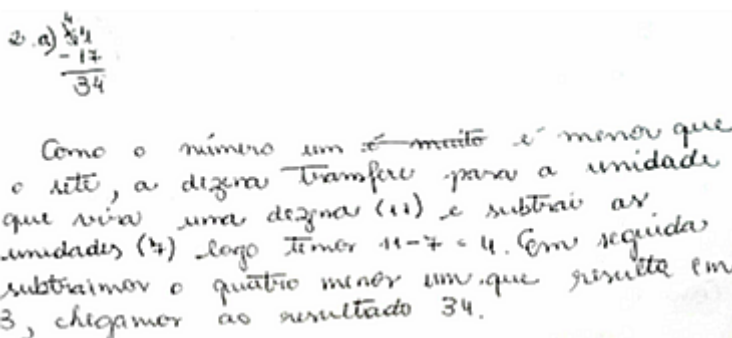 2. a) 4
51
- 17
34
Como o número um é muito é menor que
o sete, a dezena transfere para a unidade
que vira uma dezena (11) e subtrai as
unidades (7) logo temos 11-7 = 4. Em seguida
subtraimos o quatro menos um que resulta em
3, chegamos ao resultado 34.